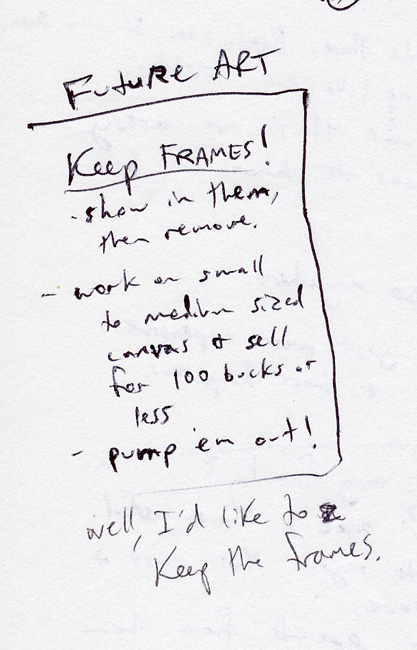 Future ART
Keep FRAMES!
- show in them,
then remove.
- work on small
to medium sized
canvas & sell
for 100 bucks or
less
- pump 'em out!
well, I'd like to
Keep the frames.